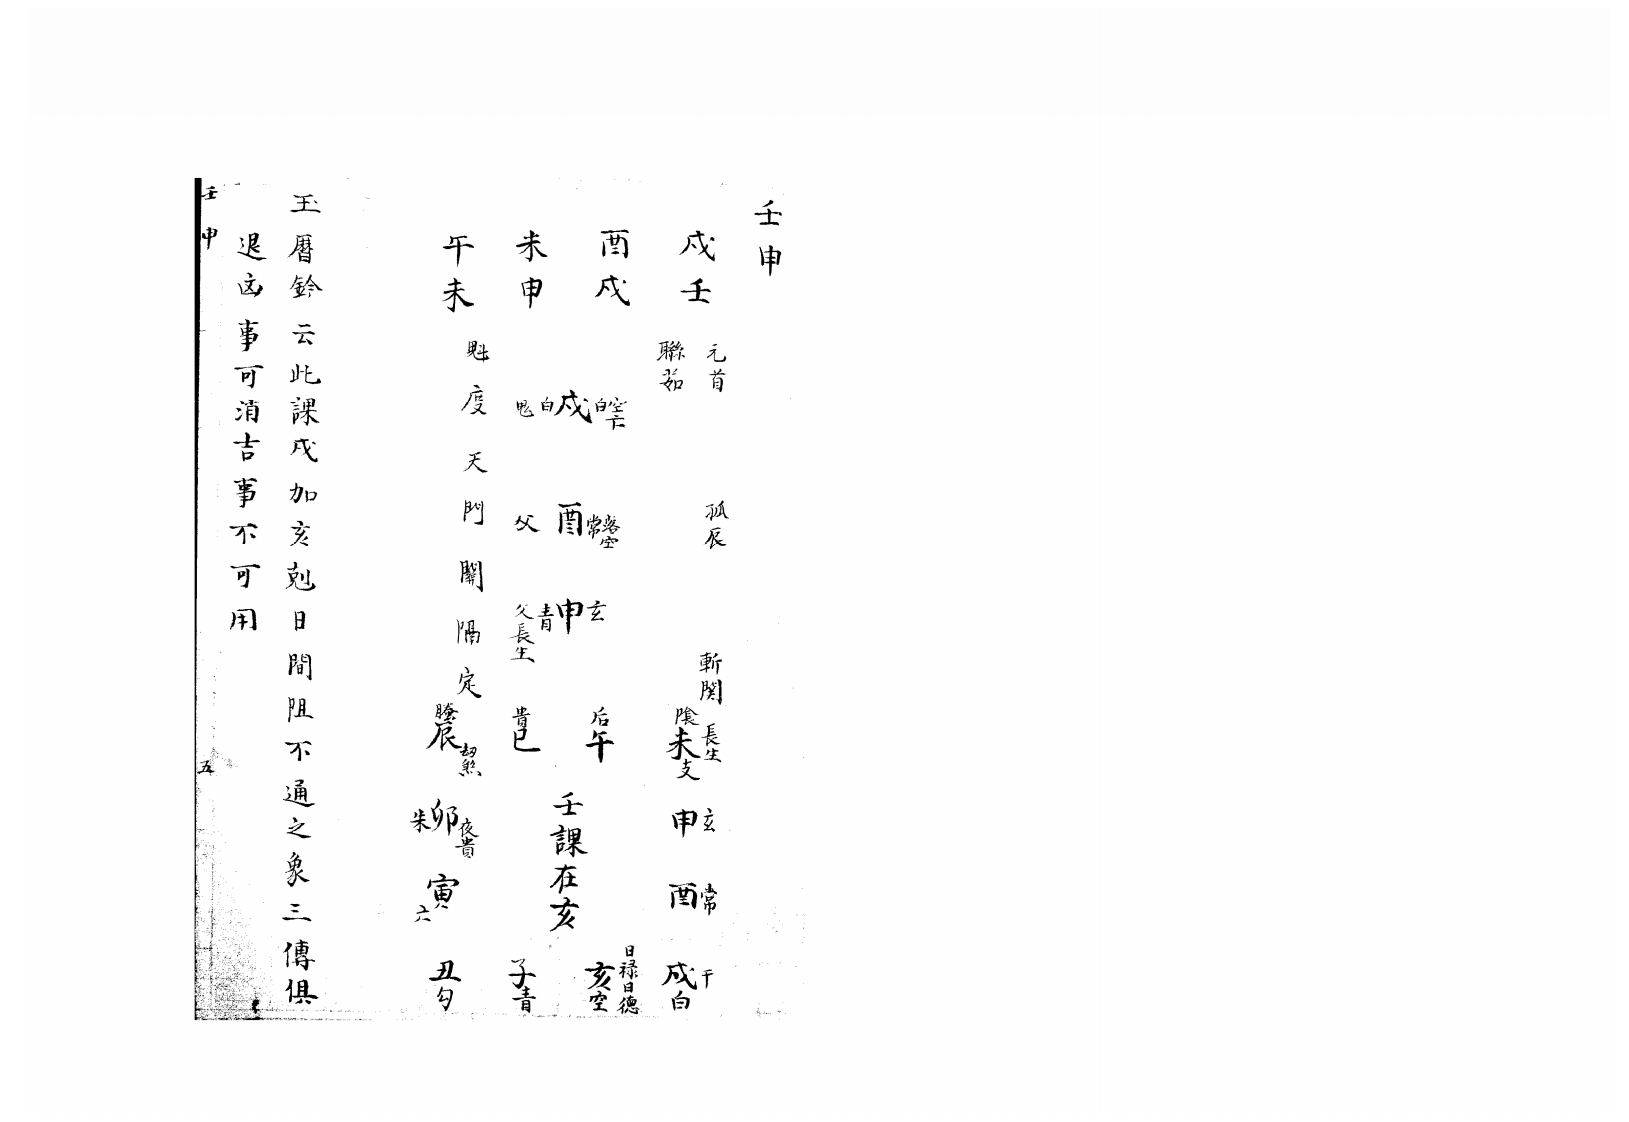 壬申
戌壬
酉戌
未申
午未
元首
聯茹
孤辰
斬関
白戌白空下
鬼
父酉常
空
青申玄
父長生
魁度天門關隔定
陰未支
長生
申玄
酉常
戌白
干
后午
亥空
日禄日德
壬課在亥
貴巳
子青
辰
劫煞
朱卯
夜貴
寅六
丑勾
玉曆鈐云此課戌加亥剋日間阻不通之象三傳俱
退凶事可消吉事不可用
壬申
五